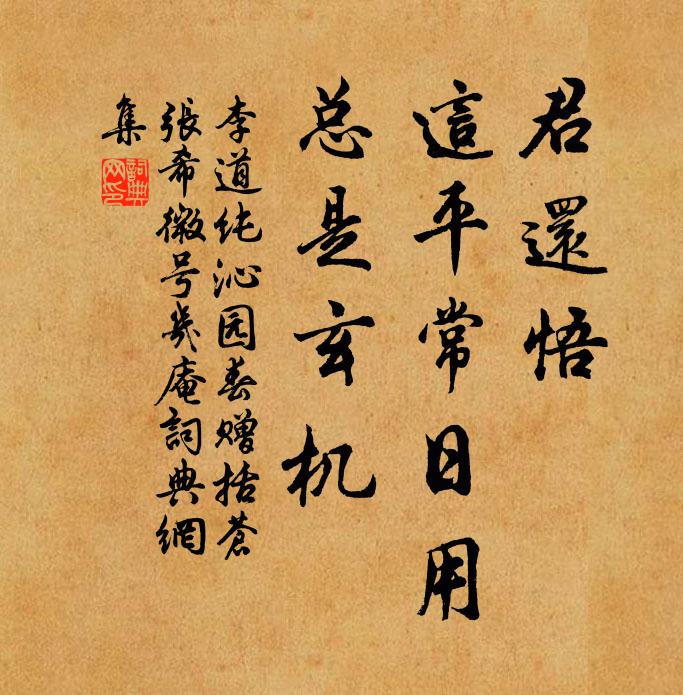 君還悟
這平常日用
总是玄机
李道纯沁园春赠括蒼
張希微号几庵詞典網
集
詞典
网印